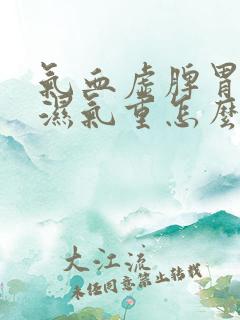 氣血虛脾胃
濕氣重怎麼
大江流
未经同意禁止转载